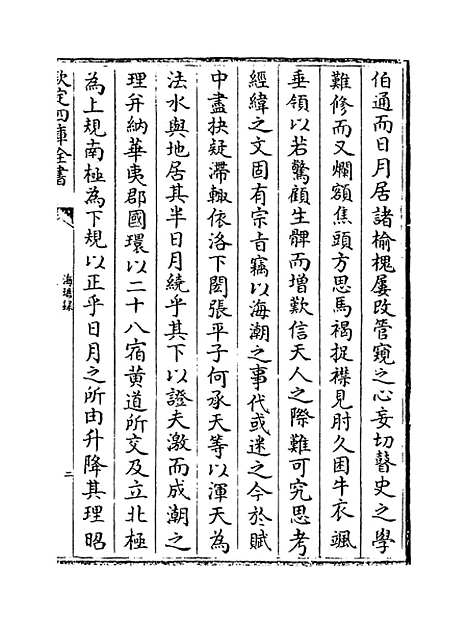 伯通而日月居諸榆槐屢改管窺之心妄切瞽史之學
難修而又爛額焦頭方思馬褐捉襟見肘久困牛衣颯
垂領以若驚顧生髀而增歎信天人之際難可究思考
經緯之文固有宗旨竊以海潮之事代或迷之今於賦
中盡抉疑滯輙依洛下閎張平子何承天等以渾天為
法水與地居其半日月繞乎其下以證夫激而成潮之
理并納華夷郡國環以二十八宿黄道所交及立北極
為上規南極為下規以正乎日月之所由升降其理昭
欽定四庫全書
海潮錄
二